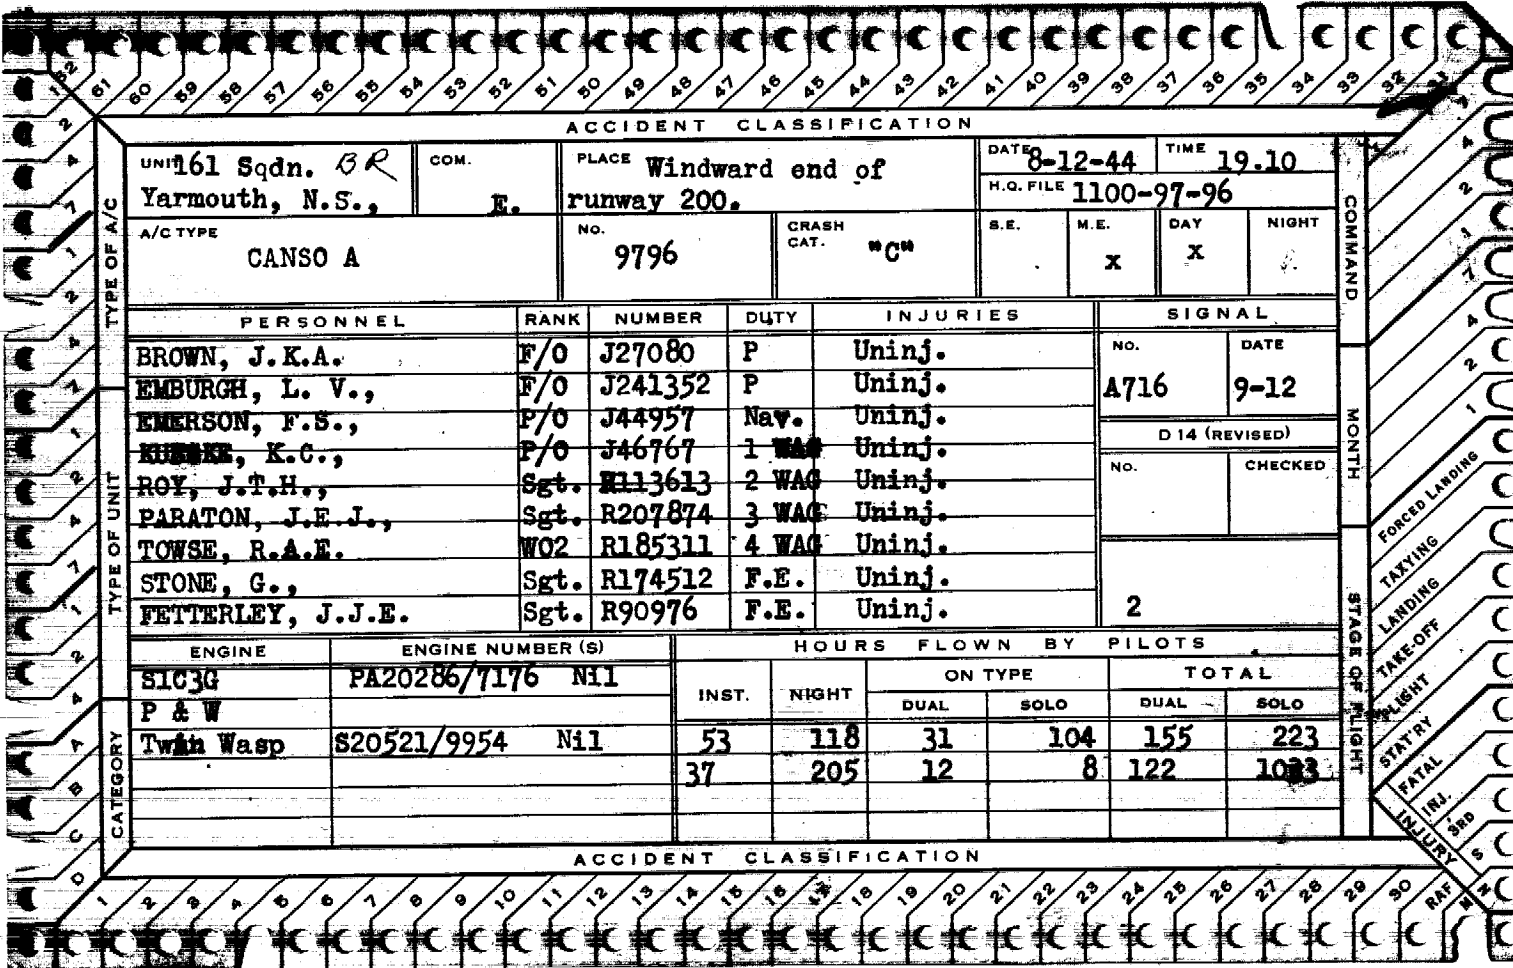 62 61 60 59 58 57 56 55 54 53 52 51 50 49 48 47 46 45 44 43 42 41 40 39 38 37 36 35 34 33 32 31
ACCIDENT CLASSIFICATION
UNIT 161 Sqdn. BR
Yarmouth, N.S.,
COM.
E.
PLACE Windward end of
runway 200.
DATE 8-12-44
TIME 19.10
H.Q. FILE 1100-97-96
A/C TYPE
CANSO A
NO.
9796
CRASH
CAT. "C"
S.E.
M.E.
x
DAY
x
NIGHT
PERSONNEL RANK NUMBER DUTY INJURIES SIGNAL
BROWN, J.K.A. F/O J27080 P Uninj.
EMBURGH, L. V., F/O J241352 P Uninj.
EMERSON, F.S., P/O J44957 Nav. Uninj.
K.C., P/O J46767 1 WAG Uninj.
ROY, J.T.H., Sgt. R113613 2 WAG Uninj.
PARATON, J.E.J., Sgt. R207874 3 WAG Uninj.
TOWSE, R.A.E. WO2 R185311 4 WAG Uninj.
STONE, G., Sgt. R174512 F.E. Uninj.
FETTERLEY, J.J.E. Sgt. R90976 F.E. Uninj.
NO. DATE
A716 9-12
D 14 (REVISED)
NO. CHECKED
2
ENGINE ENGINE NUMBER (S)
S1C3G PA20286/7176 Nil
P & W
Twin Wasp S20521/9954 Nil
HOURS FLOWN BY PILOTS
INST. NIGHT ON TYPE TOTAL
DUAL SOLO DUAL SOLO
53 118 31 104 155 223
37 205 12 8 122
ACCIDENT CLASSIFICATION
1 2 3 4 5 6 7 8 9 10 11 12 13 14 15 16 17 18 19 20 21 22 23 24 25 26 27 28 29 30 RAF
TYPE OF A/C
TYPE OF UNIT
CATEGORY
1 2 4 7 1 2 4 7 1 2 4 7 1 2 4 A B C D
COMMAND
MONTH
STAGE OF FLIGHT
7 4 2 1 7 4 2 1
FORCED LANDING
TAXYING
LANDING
TAKE-OFF
FLIGHT
STAT'RY
FATAL
INJ.
3RD
S
N
INJURY